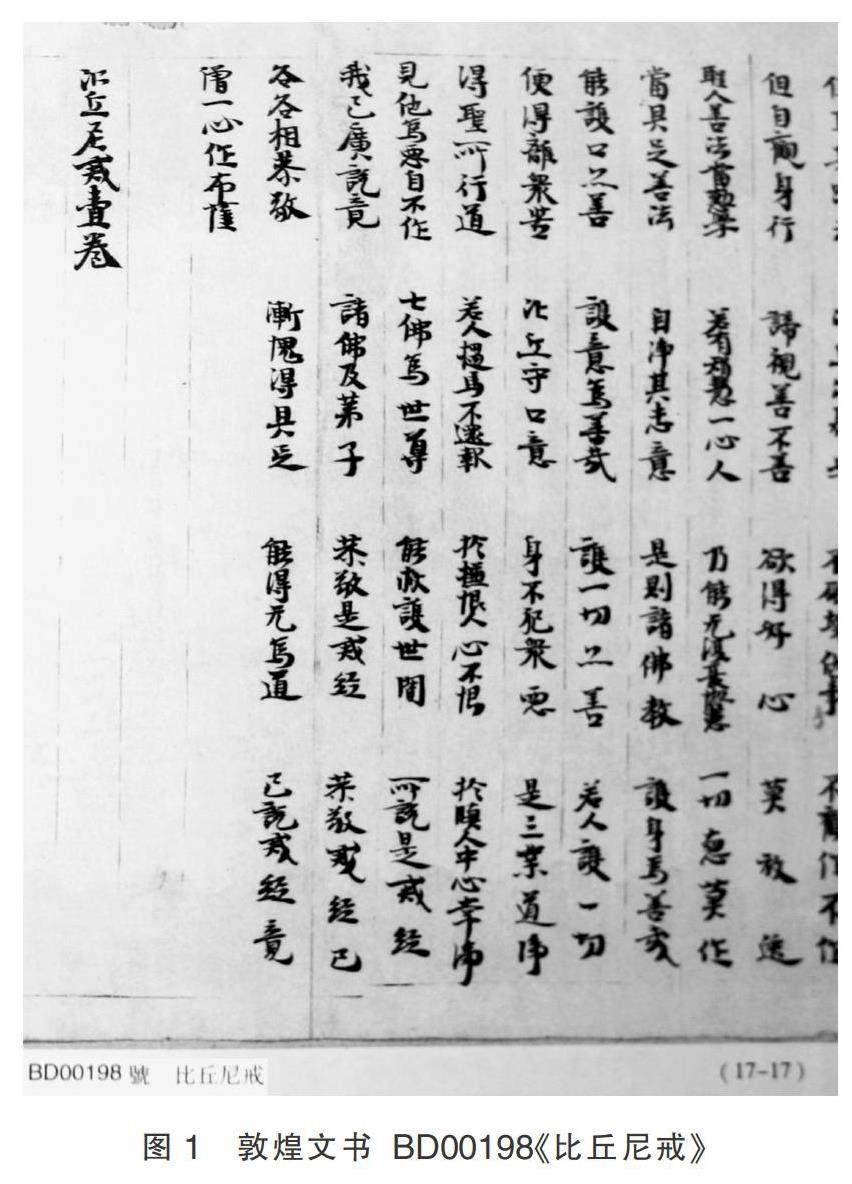 不觀作不作
但自觀身行 諦視善不善 欲得好心 莫放逸
聖人善法當勤學 若有智慧一心人 乃能无復憂愁患 一切惡莫作
當具足善法 自淨其志意 是則諸佛教 護身為善哉
能護口亦善 護意為善哉 護一切亦善 若人護一切
便得離衆苦 比丘守口意 身不犯衆惡 是三業道淨
得聖所行道 若人撾罵不還報 於嫌恨人心不恨 於瞋人中心常淨
見他為惡自不作 七佛為世尊 能救護世間 所說是戒經
我已廣說竟 諸佛及弟子 恭敬是戒經 恭敬戒經已
各各相恭敬 慚愧得具足 能得无為道 已說戒經竟
僧一心作布薩
比丘尼戒壹卷
BD00198 號 比丘尼戒 (17-17)
图 1 敦煌文书 BD00198《比丘尼戒》